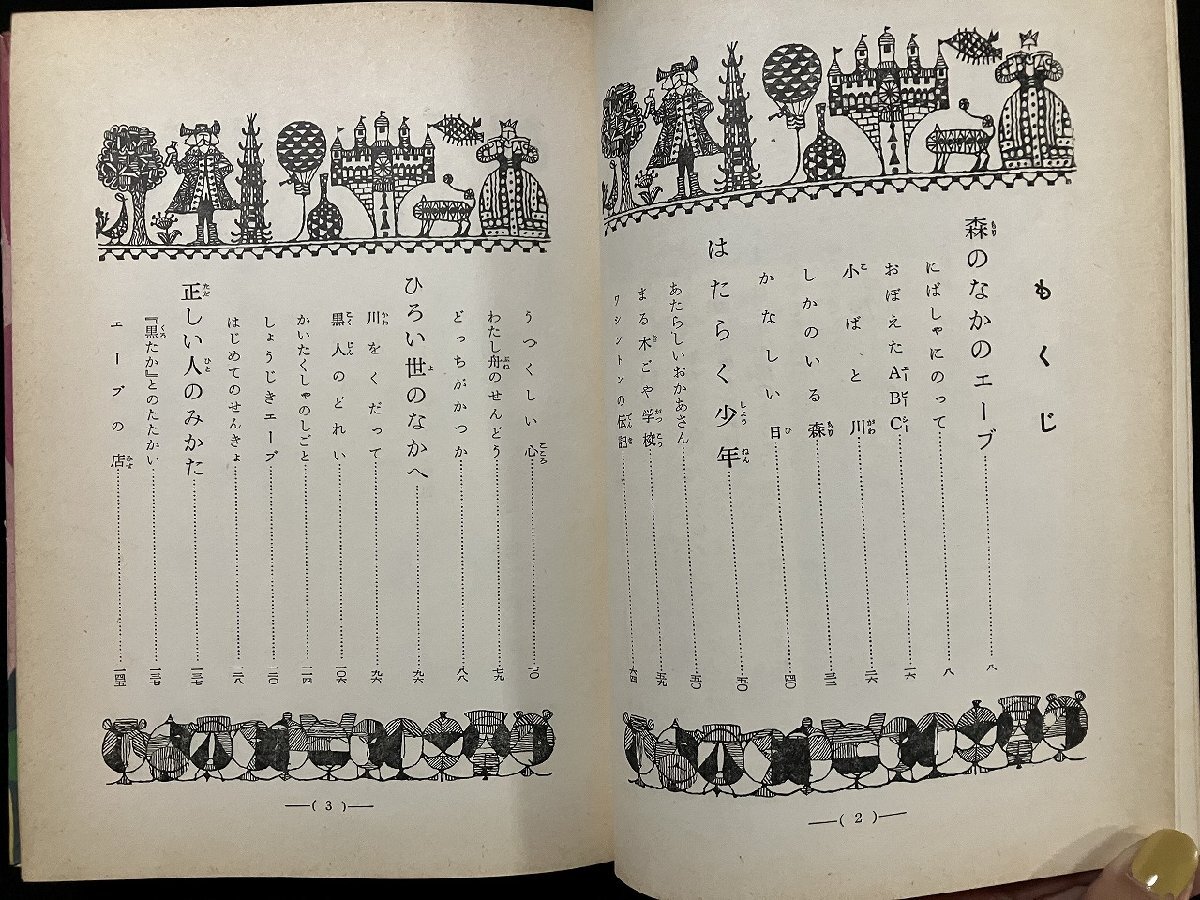 もくじ
森のなかのエーブ……八
にばしゃにのって……八
おぼえたABC……一六
小ばと川……二六
しかのいる森……三二
かなしい日……四〇
はたらく少年……五〇
あたらしいおかあさん……五〇
まる木ごや学校……五九
ワシントンの伝記……六四
—( 2 )—
うつくしい心……七〇
わたし舟のせんどう……七九
どっちがかつか……八八
ひろい世のなかへ……九六
川をくだって……九六
黒人のどれい……一〇六
かいたくしゃのしごと……一一四
しょうじきエーブ……一二〇
はじめてのせんきょ……一二八
正しい人のみかた……一三七
『黒たか』とのたたかい……一三七
エーブの店……一四五
—( 3 )—